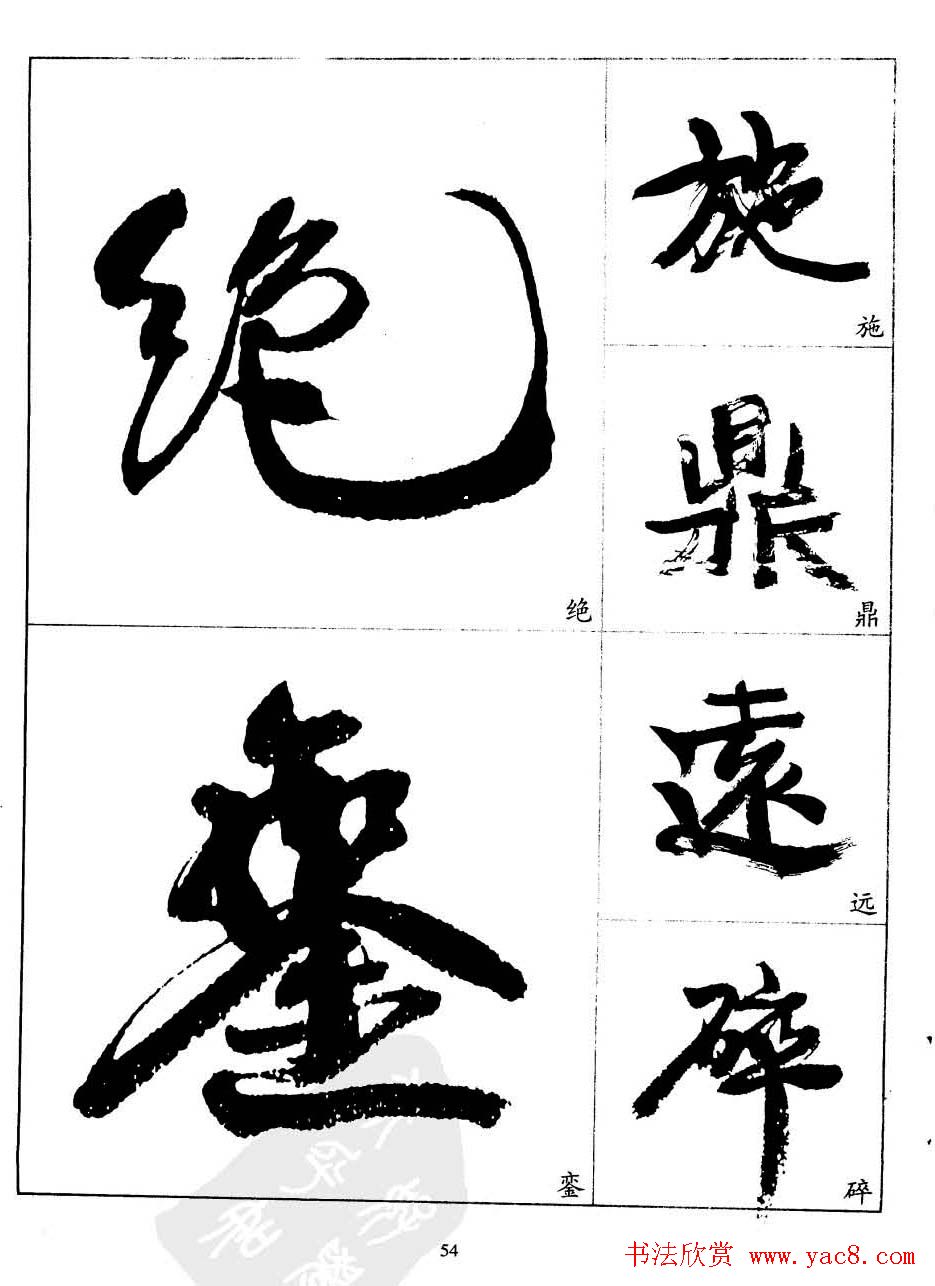 绝
绝
銮
銮
施
施
鼎
鼎
遠
远
碎
碎
54
书法欣赏 www.yac8.com